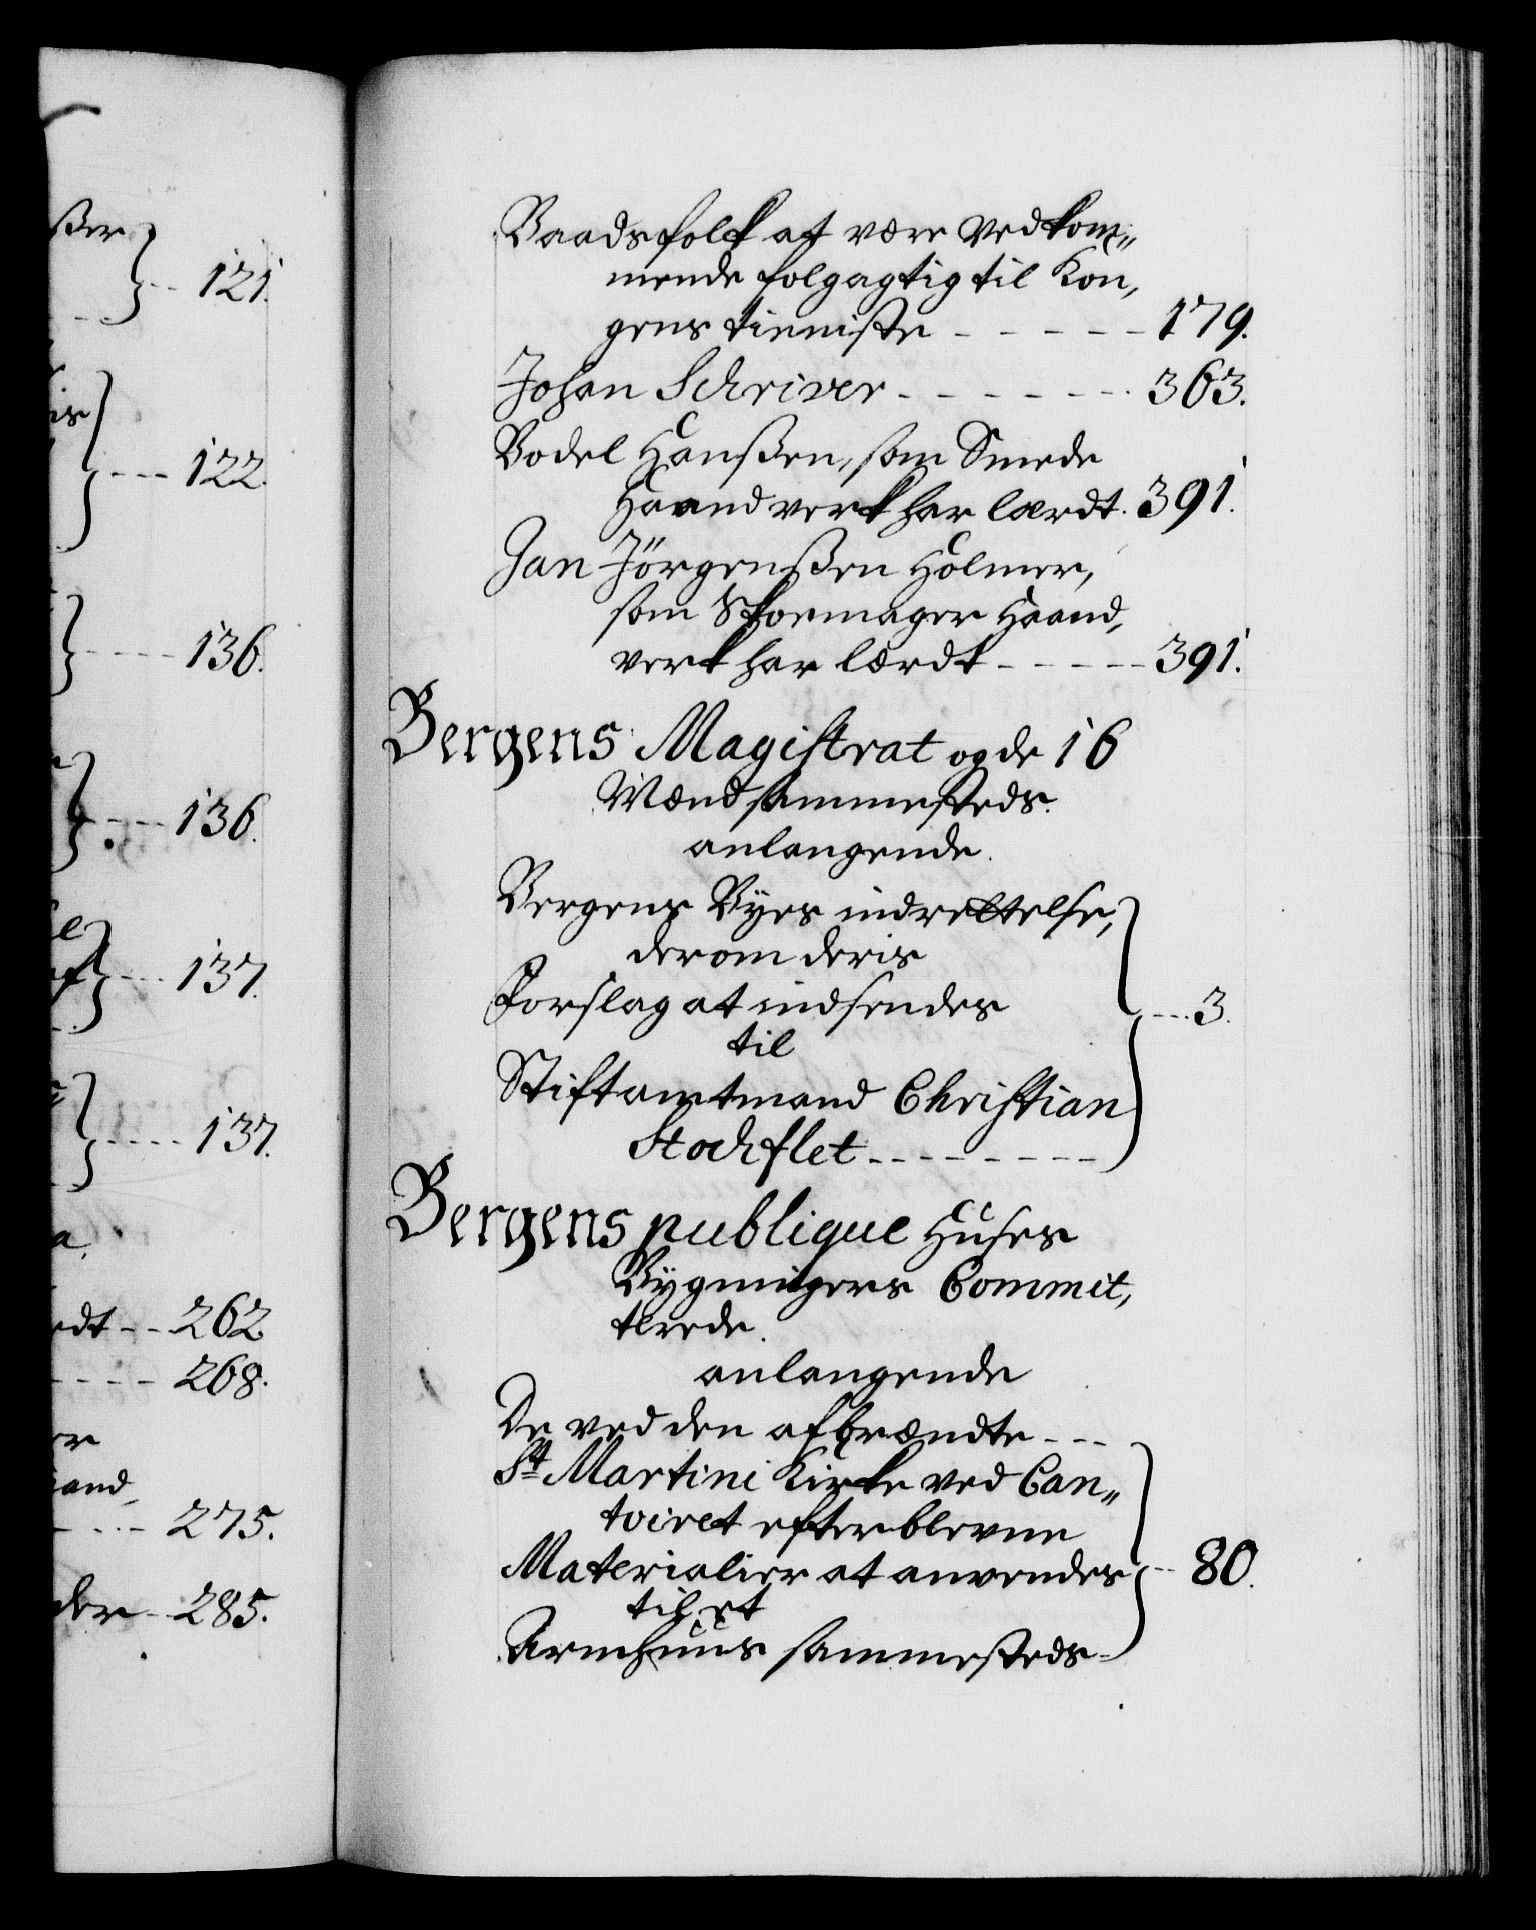 ßer
121.
is
122.
136.
136.
137.
137.
a.
edt -- 262.
---- 268.
er
aand,
--- 275.
der -- 285.
Baadsfolk at være Vedkom„
mende følgagtig til Kon,
gens tieniste ----- 179.
Johan Schriver ------- 363.
Bodel Hanßen, som Smede
Haandverk har lærdt. 391.
Jan Jörgenßen Holmer,
som Skoemager Haand,
verk har lærdt ----- 391.
Bergens Magistrat og de 16
Mænd sammesteds.
anlangende.
Bergens Byes indrettelse,
derom deris
Forslag at indsendes
til
--- 3.
Stiftamtmand Christian
Stochflet --------
Bergens publique Huses
Bygningers Commit,
terede.
anlangende
De ved den afbrændte ---
St Martini Kirke ved Can„
toiret efterblevne
Materialier at anvendes -- 80.
til et
Armhuus sammesteds-